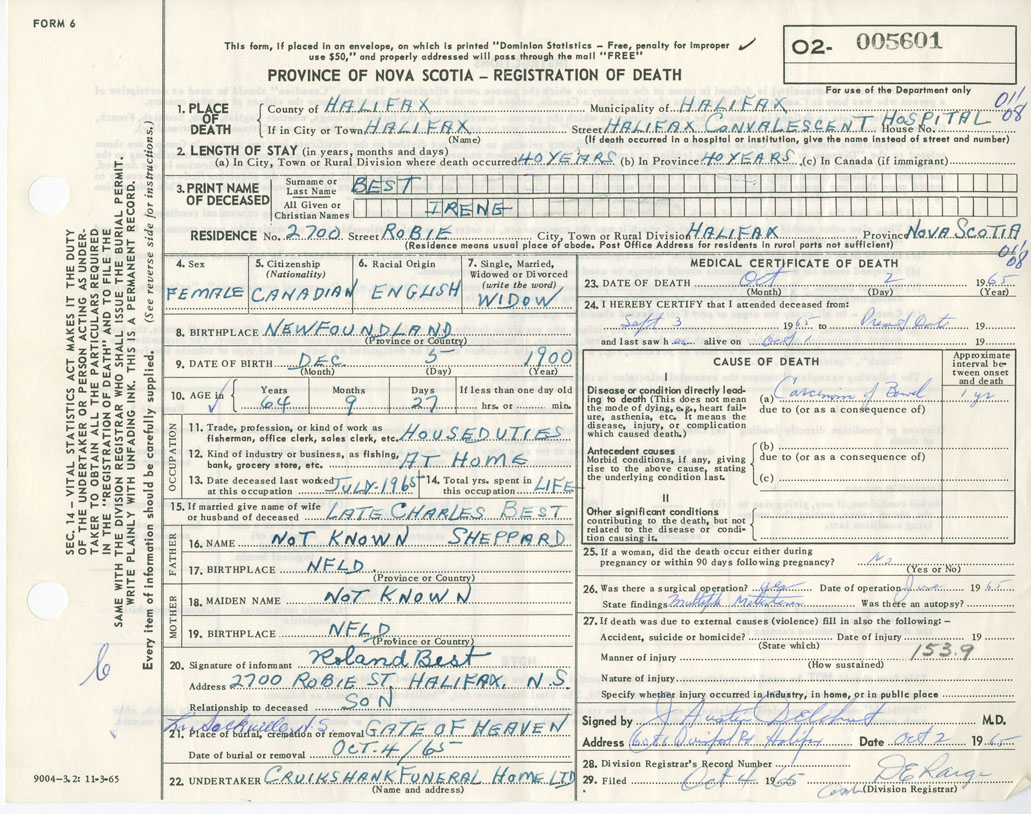 FORM 6
This form, if placed in an envelope, on which is printed "Dominion Statistics – Free, penalty for improper
use $50," and properly addressed will pass through the mail "FREE"
02- 005601
For use of the Department only
PROVINCE OF NOVA SCOTIA – REGISTRATION OF DEATH
011/08
SEC. 14 – VITAL STATISTICS ACT MAKES IT THE DUTY
OF THE UNDERTAKER OR PERSON ACTING AS UNDER-
TAKER TO OBTAIN ALL THE PARTICULARS REQUIRED
IN THE "REGISTRATION OF DEATH" AND TO FILE THE
SAME WITH THE DIVISION REGISTRAR WHO SHALL ISSUE THE BURIAL PERMIT.
WRITE PLAINLY WITH UNFADING INK. THIS IS A PERMANENT RECORD.
Every item of information should be carefully supplied. (See reverse side for instructions.)
6
9004-3.2: 11-3-65
1. PLACE OF DEATH
County of HALIFAX Municipality of HALIFAX
If in City or Town HALIFAX Street HALIFAX CONVALESCENT HOSPITAL House No.
(Name) (If death occurred in a hospital or institution, give the name instead of street and number)
2. LENGTH OF STAY (in years, months and days)
(a) In City, Town or Rural Division where death occurred 40 YEARS (b) In Province 40 YEARS (c) In Canada (if immigrant)
3. PRINT NAME OF DECEASED
Surname or Last Name BEST
All Given or Christian Names IRENE
RESIDENCE No. 2700 Street ROBIE City, Town or Rural Division HALIFAX Province NOVA SCOTIA
(Residence means usual place of abode. Post Office Address for residents in rural parts not sufficient)
011/08
4. Sex
FEMALE
5. Citizenship
(Nationality)
CANADIAN
6. Racial Origin
ENGLISH
7. Single, Married,
Widowed or Divorced
(write the word)
WIDOW
8. BIRTHPLACE NEWFOUNDLAND
(Province or Country)
9. DATE OF BIRTH DEC 5 1900
(Month) (Day) (Year)
10. AGE in
Years Months Days If less than one day old
64 9 27 hrs. or min.
OCCUPATION
11. Trade, profession, or kind of work as
fisherman, office clerk, sales clerk, etc. HOUSEDUTIES
12. Kind of industry or business, as fishing,
bank, grocery store, etc. AT HOME
13. Date deceased last worked
at this occupation JULY-1965
14. Total yrs. spent in
this occupation LIFE
15. If married give name of wife
or husband of deceased LATE CHARLES BEST
FATHER
16. NAME NOT KNOWN SHEPPARD
17. BIRTHPLACE NFLD.
(Province or Country)
MOTHER
18. MAIDEN NAME NOT KNOWN
19. BIRTHPLACE NFLD
(Province or Country)
20. Signature of informant Roland Best
Address 2700 ROBIE ST. HALIFAX. N.S.
Relationship to deceased SON
Sackville, N.S.
21. Place of burial, cremation or removal GATE OF HEAVEN
Date of burial or removal OCT. 4/65
22. UNDERTAKER CRUIKSHANK FUNERAL HOME LTD
(Name and address)
MEDICAL CERTIFICATE OF DEATH
23. DATE OF DEATH Oct 2 1965
(Month) (Day) (Year)
24. I HEREBY CERTIFY that I attended deceased from:
Sept 3 1965 to 19
and last saw her alive on Oct 1 19
CAUSE OF DEATH
Approximate
interval be-
tween onset
and death
I
Disease or condition directly lead-
ing to death (This does not mean
the mode of dying, e.g., heart fail-
ure, asthenia, etc. It means the
disease, injury, or complication
which caused death.)
(a) Carcinoma of Bowel 1 yr
due to (or as a consequence of)
Antecedent causes
Morbid conditions, if any, giving
rise to the above cause, stating
the underlying condition last.
(b)
due to (or as a consequence of)
(c)
II
Other significant conditions
contributing to the death, but not
related to the disease or condi-
tion causing it.
25. If a woman, did the death occur either during
pregnancy or within 90 days following pregnancy? No
(Yes or No)
26. Was there a surgical operation? yes Date of operation June 1965
State findings Multiple Metastases Was there an autopsy?
27. If death was due to external causes (violence) fill in also the following: –
Accident, suicide or homicide? Date of injury 19
(State which)
Manner of injury 153.9
(How sustained)
Nature of injury
Specify whether injury occurred in industry, in home, or in public place
Signed by J Austin M.D.
Address Halifax Date Oct 2 1965
28. Division Registrar's Record Number
29. Filed Oct 4 1965
(Division Registrar)